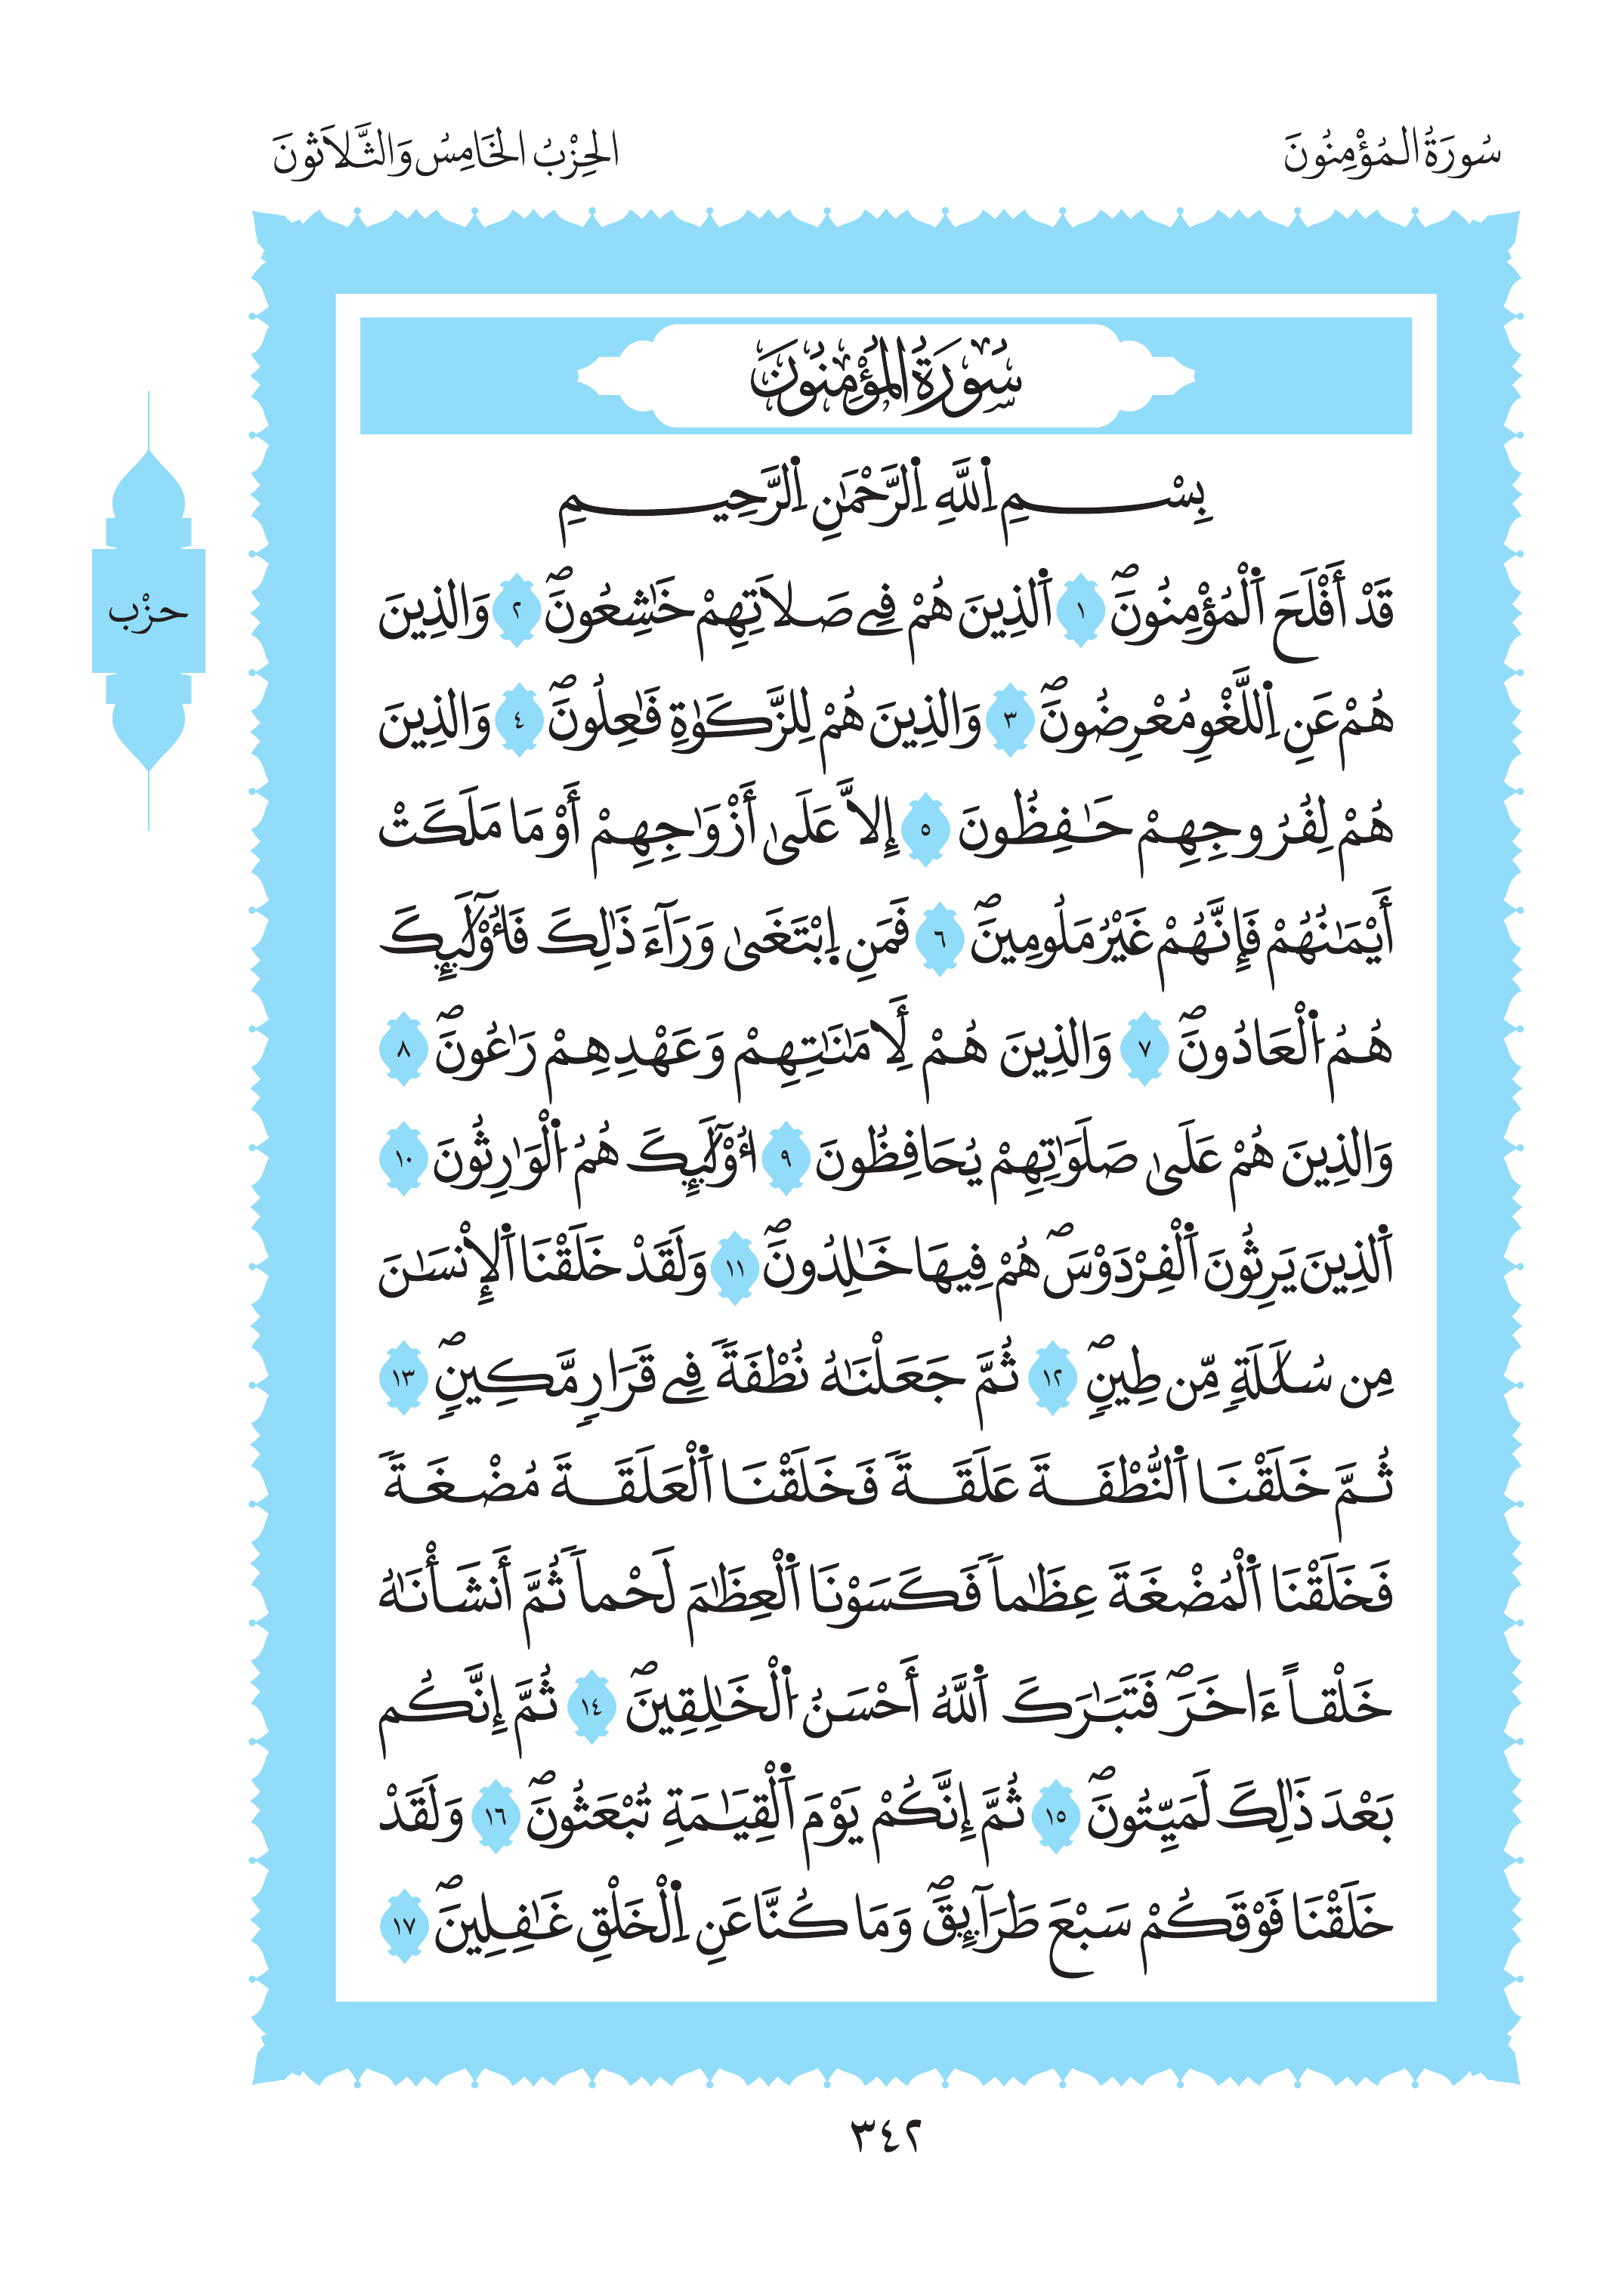 سُورَةُ الْمُؤْمِنُونَ
الحِزْبُ الخَامِسُ وَالثَّلاَثُونَ
سُورَةُ الْمُؤْمِنُونَ
بِسْمِ اِللَّهِ اِلرَّحْمَٰنِ اِلرَّحِيمِ
حزْب
قَدْ أَفْلَحَ اَلْمُؤْمِنُونَۖ ١ اَلذِينَ هُمْ فِے صَلاَتِهِمْ خَٰشِعُونَۖ ٢ وَالذِينَ
هُمْ عَنِ اِللَّغْوِ مُعْرِضُونَۖ ٣ وَالذِينَ هُمْ لِلزَّكَوٰةِ فَٰعِلُونَۖ ٤ وَالذِينَ
هُمْ لِفُرُوجِهِمْ حَٰفِظُونَ ٥ إِلاَّ عَلَىٰ أَزْوَٰجِهِمْ أَوْ مَا مَلَكَتْ
أَيْمَٰنُهُمْ فَإِنَّهُمْ غَيْرُ مَلُومِينَۖ ٦ فَمَنِ اِبْتَغَىٰ وَرَآءَ ذَٰلِكَ فَأُوْلَٰٓئِكَ
هُمُ اُلْعَادُونَۖ ٧ وَالذِينَ هُمْ لِأَمَٰنَٰتِهِمْ وَعَهْدِهِمْ رَٰعُونَۖ ٨
وَالذِينَ هُمْ عَلَىٰ صَلَوَٰتِهِمْ يُحَافِظُونَ ٩ أُوْلَٰٓئِكَ هُمُ اُلْوَٰرِثُونَ ١٠
اَلذِينَ يَرِثُونَ اَلْفِرْدَوْسَۖ هُمْ فِيهَا خَٰلِدُونَۖ ١١ وَلَقَدْ خَلَقْنَا اَلْإِنسَٰنَ
مِن سُلَٰلَةٖ مِّن طِينٖۖ ١٢ ثُمَّ جَعَلْنَٰهُ نُطْفَةٗ فِے قَرَارٖ مَّكِينٖۖ ١٣
ثُمَّ خَلَقْنَا اَلنُّطْفَةَ عَلَقَةٗ فَخَلَقْنَا اَلْعَلَقَةَ مُضْغَةٗ
فَخَلَقْنَا اَلْمُضْغَةَ عِظَٰماٗ فَكَسَوْنَا اَلْعِظَٰمَ لَحْماٗ ثُمَّ أَنشَأْنَٰهُ
خَلْقاً ءَاخَرَۖ فَتَبَٰرَكَ اَللَّهُ أَحْسَنُ اُلْخَٰلِقِينَۖ ١٤ ثُمَّ إِنَّكُم
بَعْدَ ذَٰلِكَ لَمَيِّتُونَۖ ١٥ ثُمَّ إِنَّكُمْ يَوْمَ اَلْقِيَٰمَةِ تُبْعَثُونَۖ ١٦ وَلَقَدْ
خَلَقْنَا فَوْقَكُمْ سَبْعَ طَرَآئِقَۖ وَمَا كُنَّا عَنِ اِلْخَلْقِ غَٰفِلِينَۖ ١٧
٣٤٢